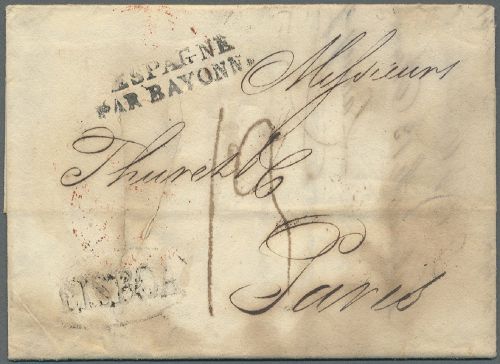 ESPAGNE
PAR BAYONN.
Messieurs
Thuret & C
Paris
LISBOA